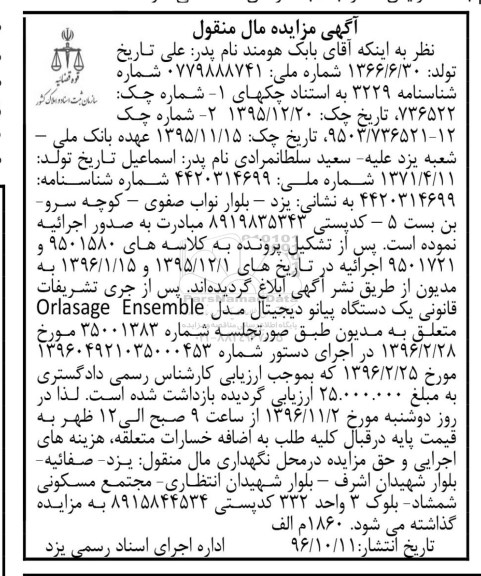 آگهی مزایده مال منقول
نظر به اینکه آقای بابک هومند نام پدر: علی تاریخ
تولد: ۱۳۶۶/۶/۳۰ شماره ملی: ۰۷۷۹۸۸۸۷۴۱ شماره
شناسنامه ۳۲۲۹ به استناد چکهای ۱- شماره چک:
۷۳۶۵۲۲، تاریخ چک: ۱۳۹۵/۱۲/۲۰ ۲- شماره چک
۹۵۰۳/۷۳۶۵۲۱-۱۲، تاریخ چک: ۱۳۹۵/۱۱/۱۵ عهده بانک ملی –
شعبه یزد علیه- سعید سلطانمرادی نام پدر: اسماعیل تاریخ تولد:
۱۳۷۱/۴/۱۱ شماره ملی: ۴۴۲۰۳۱۴۶۹۹ شماره شناسنامه:
۴۴۲۰۳۱۴۶۹۹ به نشانی: یزد – بلوار نواب صفوی – کوچه سرو-
بن بست ۵ – کدپستی ۸۹۱۹۸۳۵۳۴۳ مبادرت به صدور اجرائیه
نموده است. پس از تشکیل پرونده به کلاسه های ۹۵۰۱۵۸۰ و
۹۵۰۱۷۲۱ اجرائیه در تاریخ های ۱۳۹۵/۱۲/۱ و ۱۳۹۶/۱/۱۵ به
مدیون از طریق نشر آگهی ابلاغ گردیده‌اند. پس از جری تشریفات
قانونی یک دستگاه پیانو دیجیتال مدل Orlasage Ensemble
متعلق به مدیون طبق صورتجلسه شماره ۳۵۰۰۱۳۸۳ مورخ
۱۳۹۶/۲/۲۸ در اجرای دستور شماره ۱۳۹۶۰۴۹۲۱۰۳۵۰۰۰۴۵۳
مورخ ۱۳۹۶/۲/۲۵ که بموجب ارزیابی کارشناس رسمی دادگستری
به مبلغ ۲۵.۰۰۰.۰۰۰ ارزیابی گردیده بازداشت شده است. لذا در
روز دوشنبه مورخ ۱۳۹۶/۱۱/۲ از ساعت ۹ صبح الی۱۲ ظهر به
قیمت پایه درقبال کلیه طلب به اضافه خسارات متعلقه، هزینه های
اجرایی و حق مزایده درمحل نگهداری مال منقول: یزد- صفائیه-
بلوار شهیدان اشرف – بلوار شهیدان انتظاری- مجتمع مسکونی
شمشاد- بلوک ۳ واحد ۳۳۲ کدپستی ۸۹۱۵۸۴۴۵۳۴ به مزایده
گذاشته می شود. ۱۸۶۰م الف
تاریخ انتشار:۹۶/۱۰/۱۱ اداره اجرای اسناد رسمی یزد
قوه قضائیه
سازمان ثبت اسناد و املاک کشور